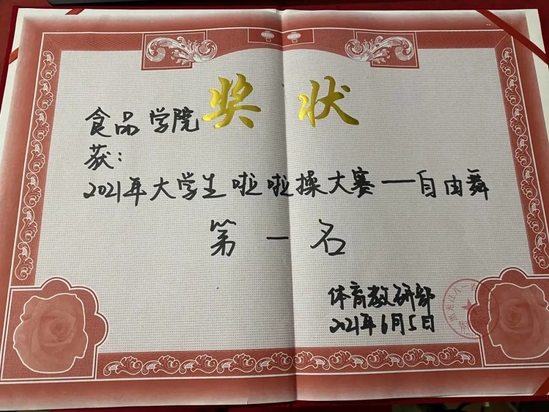 奖状
食品学院
获：
2021年大学生啦啦操大赛——自由舞
第一名
体育教研部
2021年6月5日